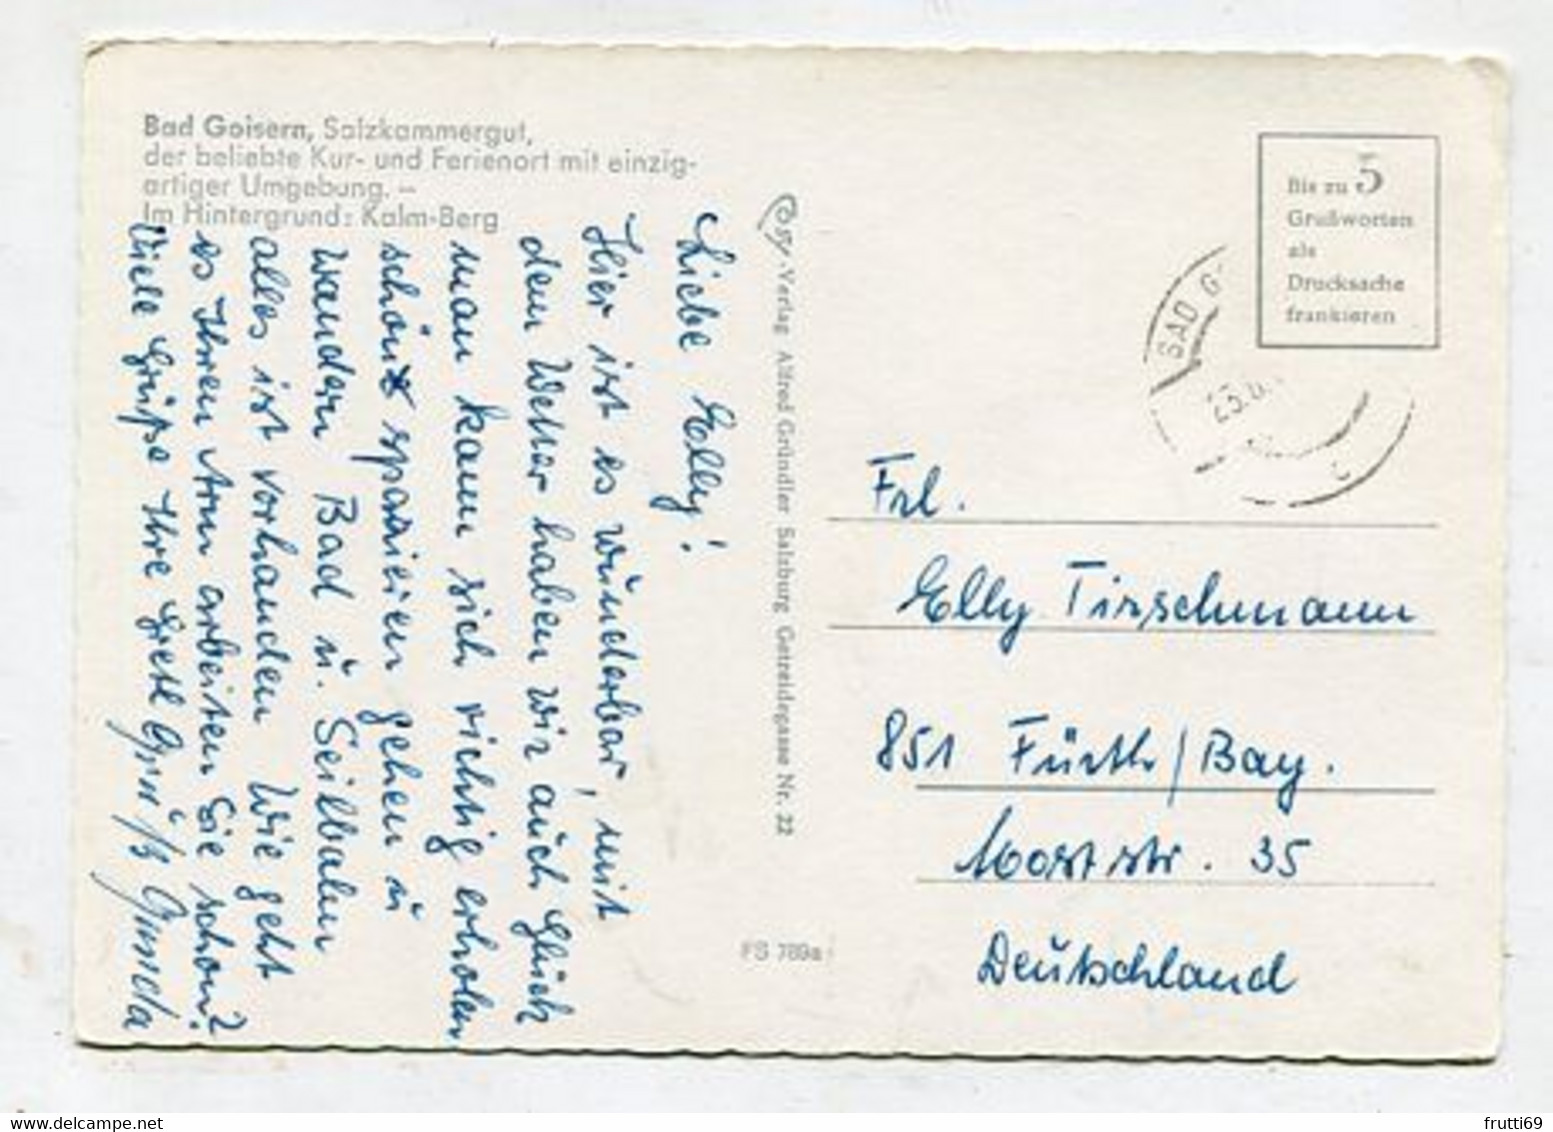 Bad Goisern, Salzkammergut,
der beliebte Kur- und Ferienort mit einzig-
artiger Umgebung. –
Im Hintergrund: Kalm-Berg
Liebe Elly!
Hier ist es wunderbar, mit
dem Wetter haben wir auch Glück
man kann sich richtig erholen
schön spazieren gehen u
wandern Bad u. Seilbahn
alles ist vorhanden Wie geht
es Ihren Arm arbeiten Sie schon?
Viele Grüße Ihre Gretl
Cosy-Verlag Alfred Gründler Salzburg Getreidegasse Nr. 22
FS 789a
Bis zu 5
Grußworten
als
Drucksache
frankieren
BAD G
Frl.
Elly Tirschmann
851 Fürth/Bay.
Moststr. 35
Deutschland
www.delcampe.net
frutti69